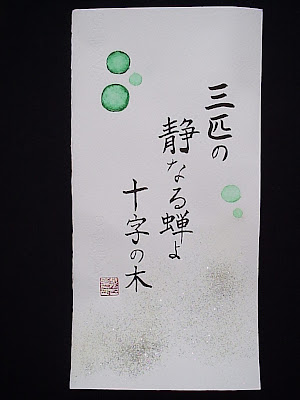 三匹の
静なる蝉よ
十字の木